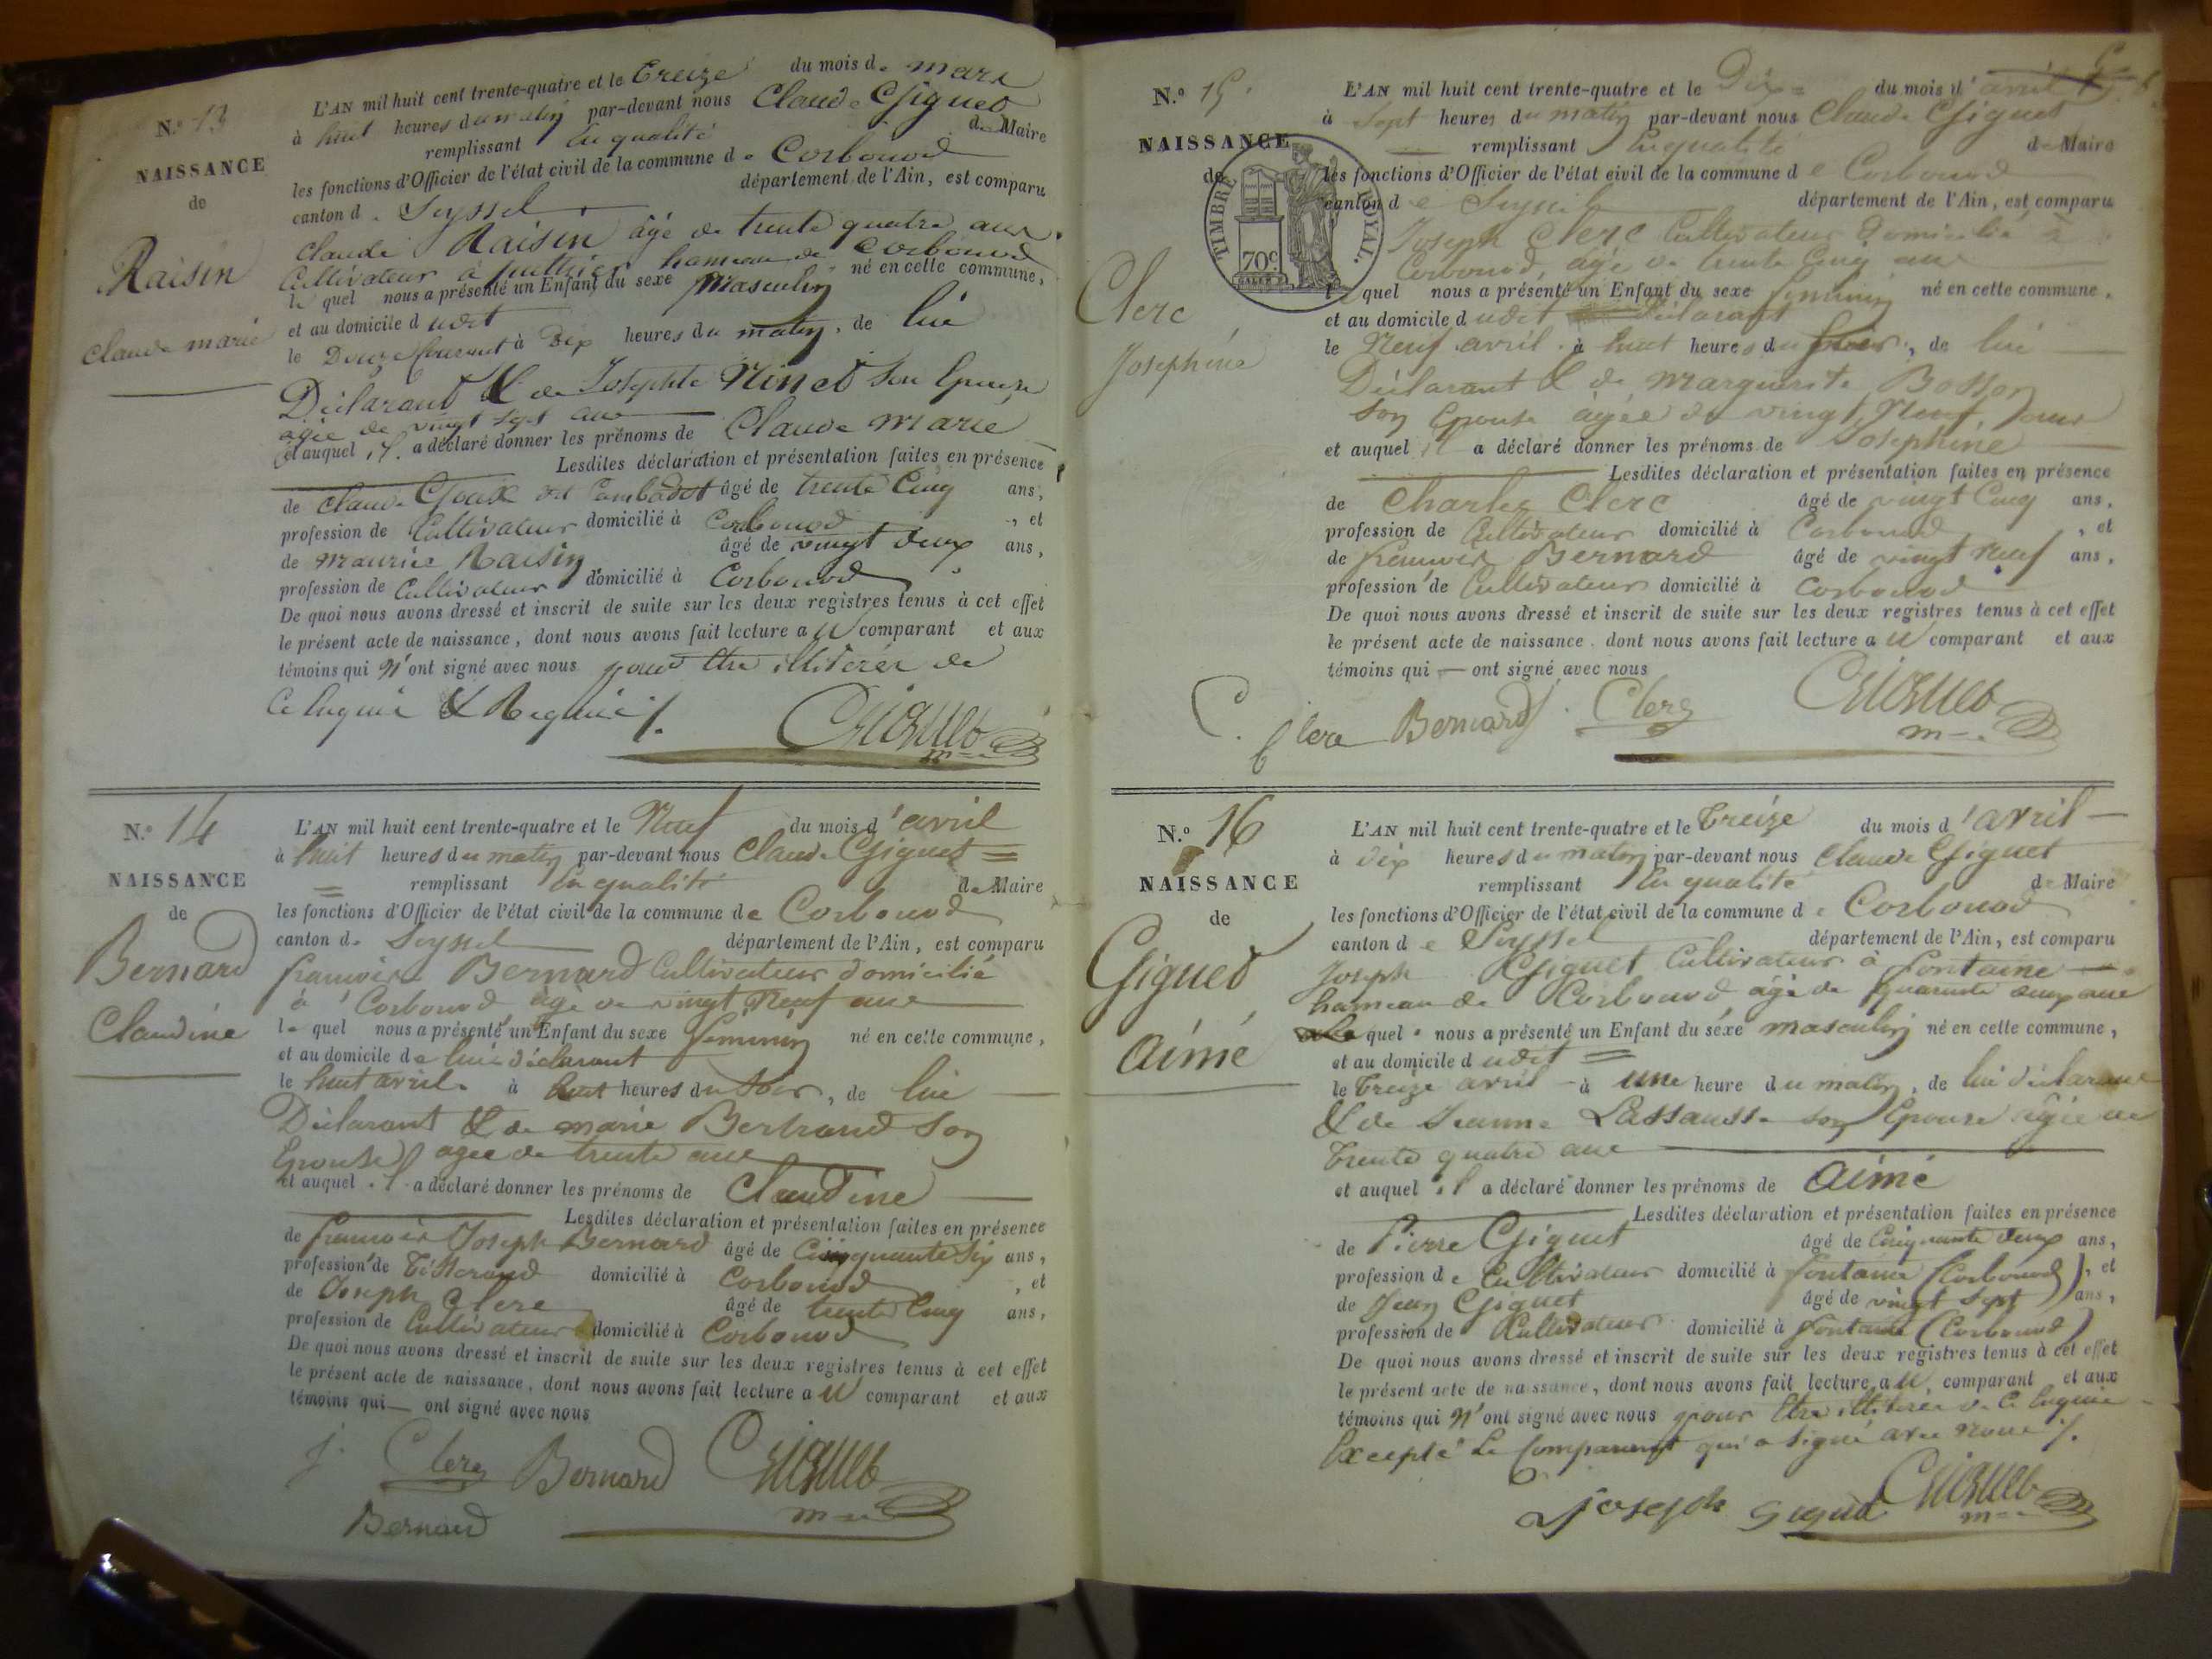 N.º 13
NAISSANCE
de
Raisin
Claude marie
L'AN mil huit cent trente-quatre et le treize du mois de mars
à huit heures du matin par-devant nous Claude Giguet
remplissant En qualité de Maire
les fonctions d'Officier de l'état civil de la commune de Corbonod
canton de Seyssel département de l'Ain, est comparu
Claude Raisin âgé de trente quatre ans
Cultivateur à hameau de Corbonod
le quel nous a présenté un Enfant du sexe Masculin né en cette commune,
et au domicile d udit
le Douze Courant à Dix heures du matin, de lui
Déclarant & de Josephte Ninet Son Epouse
agée de vingt sept ans
et auquel il a déclaré donner les prénoms de Claude Marie
Lesdites déclaration et présentation faites en présence
de Claude âgé de trente Cinq ans,
profession de Cultivateur domicilié à Corbonod, et
de Maurice Raisin âgé de vingt deux ans,
profession de Cultivateur domicilié à Corbonod
De quoi nous avons dressé et inscrit de suite sur les deux registres tenus à cet effet
le présent acte de naissance, dont nous avons fait lecture au comparant et aux
témoins qui n'ont signé avec nous pour être illitérés de
Ce Enquis & Requis ./.
Giguet
m=e
N.º 14
NAISSANCE
de
Bernard
Claudine
L'AN mil huit cent trente-quatre et le Neuf du mois d'avril
à huit heures du matin par-devant nous Claude Giguet =
= remplissant En qualité de Maire
les fonctions d'Officier de l'état civil de la commune de Corbonod
canton de Seyssel département de l'Ain, est comparu
françois Bernard Cultivateur domicilié
à Corbonod âgé de vingt Neuf ans
le quel nous a présenté un Enfant du sexe féminin né en cette commune,
et au domicile de lui déclarant
le huit avril à huit heures du Soir, de lui
Déclarant & de marie Bertrand Son
Epouse agée de trente ans
et auquel il a déclaré donner les prénoms de Claudine
Lesdites déclaration et présentation faites en présence
de françois Joseph Bernard âgé de Cinquante Six ans,
profession de Tisserand domicilié à Corbonod, et
de Joseph Clerc âgé de trente Cinq ans,
profession de Cultivateur domicilié à Corbonod
De quoi nous avons dressé et inscrit de suite sur les deux registres tenus à cet effet
le présent acte de naissance, dont nous avons fait lecture au comparant et aux
témoins qui — ont signé avec nous
j. Clerc Bernard Giguet
Bernard m=e
N.º 15
NAISSANCE
de
Clerc
Josephine
TIMBRE ROYAL.
70c
L'AN mil huit cent trente-quatre et le Dix = du mois d'avril
à Sept heures du matin par-devant nous Claude Giguet
remplissant En qualité de Maire
les fonctions d'Officier de l'état civil de la commune de Corbonod
canton de Seyssel département de l'Ain, est comparu
Joseph Clerc Cultivateur Domicilié à
Corbonod, agé de trente Cinq ans
le quel nous a présenté un Enfant du sexe féminin né en cette commune,
et au domicile d udit déclarant
le Neuf avril à huit heures du Soir, de lui
Déclarant & de Marguerite Bosson
Son Epouse agée de vingt Neuf ans
et auquel il a déclaré donner les prénoms de Josephine
Lesdites déclaration et présentation faites en présence
de Charles Clerc âgé de vingt Cinq ans,
profession de Cultivateur domicilié à Corbonod, et
de françois Bernard âgé de vingt neuf ans,
profession de Cultivateur domicilié à Corbonod
De quoi nous avons dressé et inscrit de suite sur les deux registres tenus à cet effet
le présent acte de naissance, dont nous avons fait lecture au comparant et aux
témoins qui — ont signé avec nous
C. Clerc Bernard j. Clerc Giguet
m=e
N.º 16
NAISSANCE
de
Giguet
aimé
L'AN mil huit cent trente-quatre et le treize du mois d'avril
à Dix heures du matin par-devant nous Claude Giguet
remplissant En qualité de Maire
les fonctions d'Officier de l'état civil de la commune de Corbonod
canton de Seyssel département de l'Ain, est comparu
Joseph Giguet Cultivateur à fontaine
hameau de Corbonod âgé de quarante deux ans
le quel nous a présenté un Enfant du sexe masculin né en cette commune,
et au domicile d udit =
le treize avril à une heure du matin, de lui déclarant
& de Jeanne Lassausse son Epouse agée de
trente quatre ans
et auquel il a déclaré donner les prénoms de aimé
Lesdites déclaration et présentation faites en présence
de Pierre Giguet âgé de Cinquante deux ans,
profession de Cultivateur domicilié à fontaine (Corbonod), et
de Jean Giguet âgé de vingt Sept ans,
profession de Cultivateur domicilié à fontaine (Corbonod)
De quoi nous avons dressé et inscrit de suite sur les deux registres tenus à cet effet
le présent acte de naissance, dont nous avons fait lecture au comparant et aux
témoins qui n'ont signé avec nous pour être illitérés de Ce Enquis
Excepté Le Comparant qui a signé avec nous ./.
joseph giguet Giguet
m=e